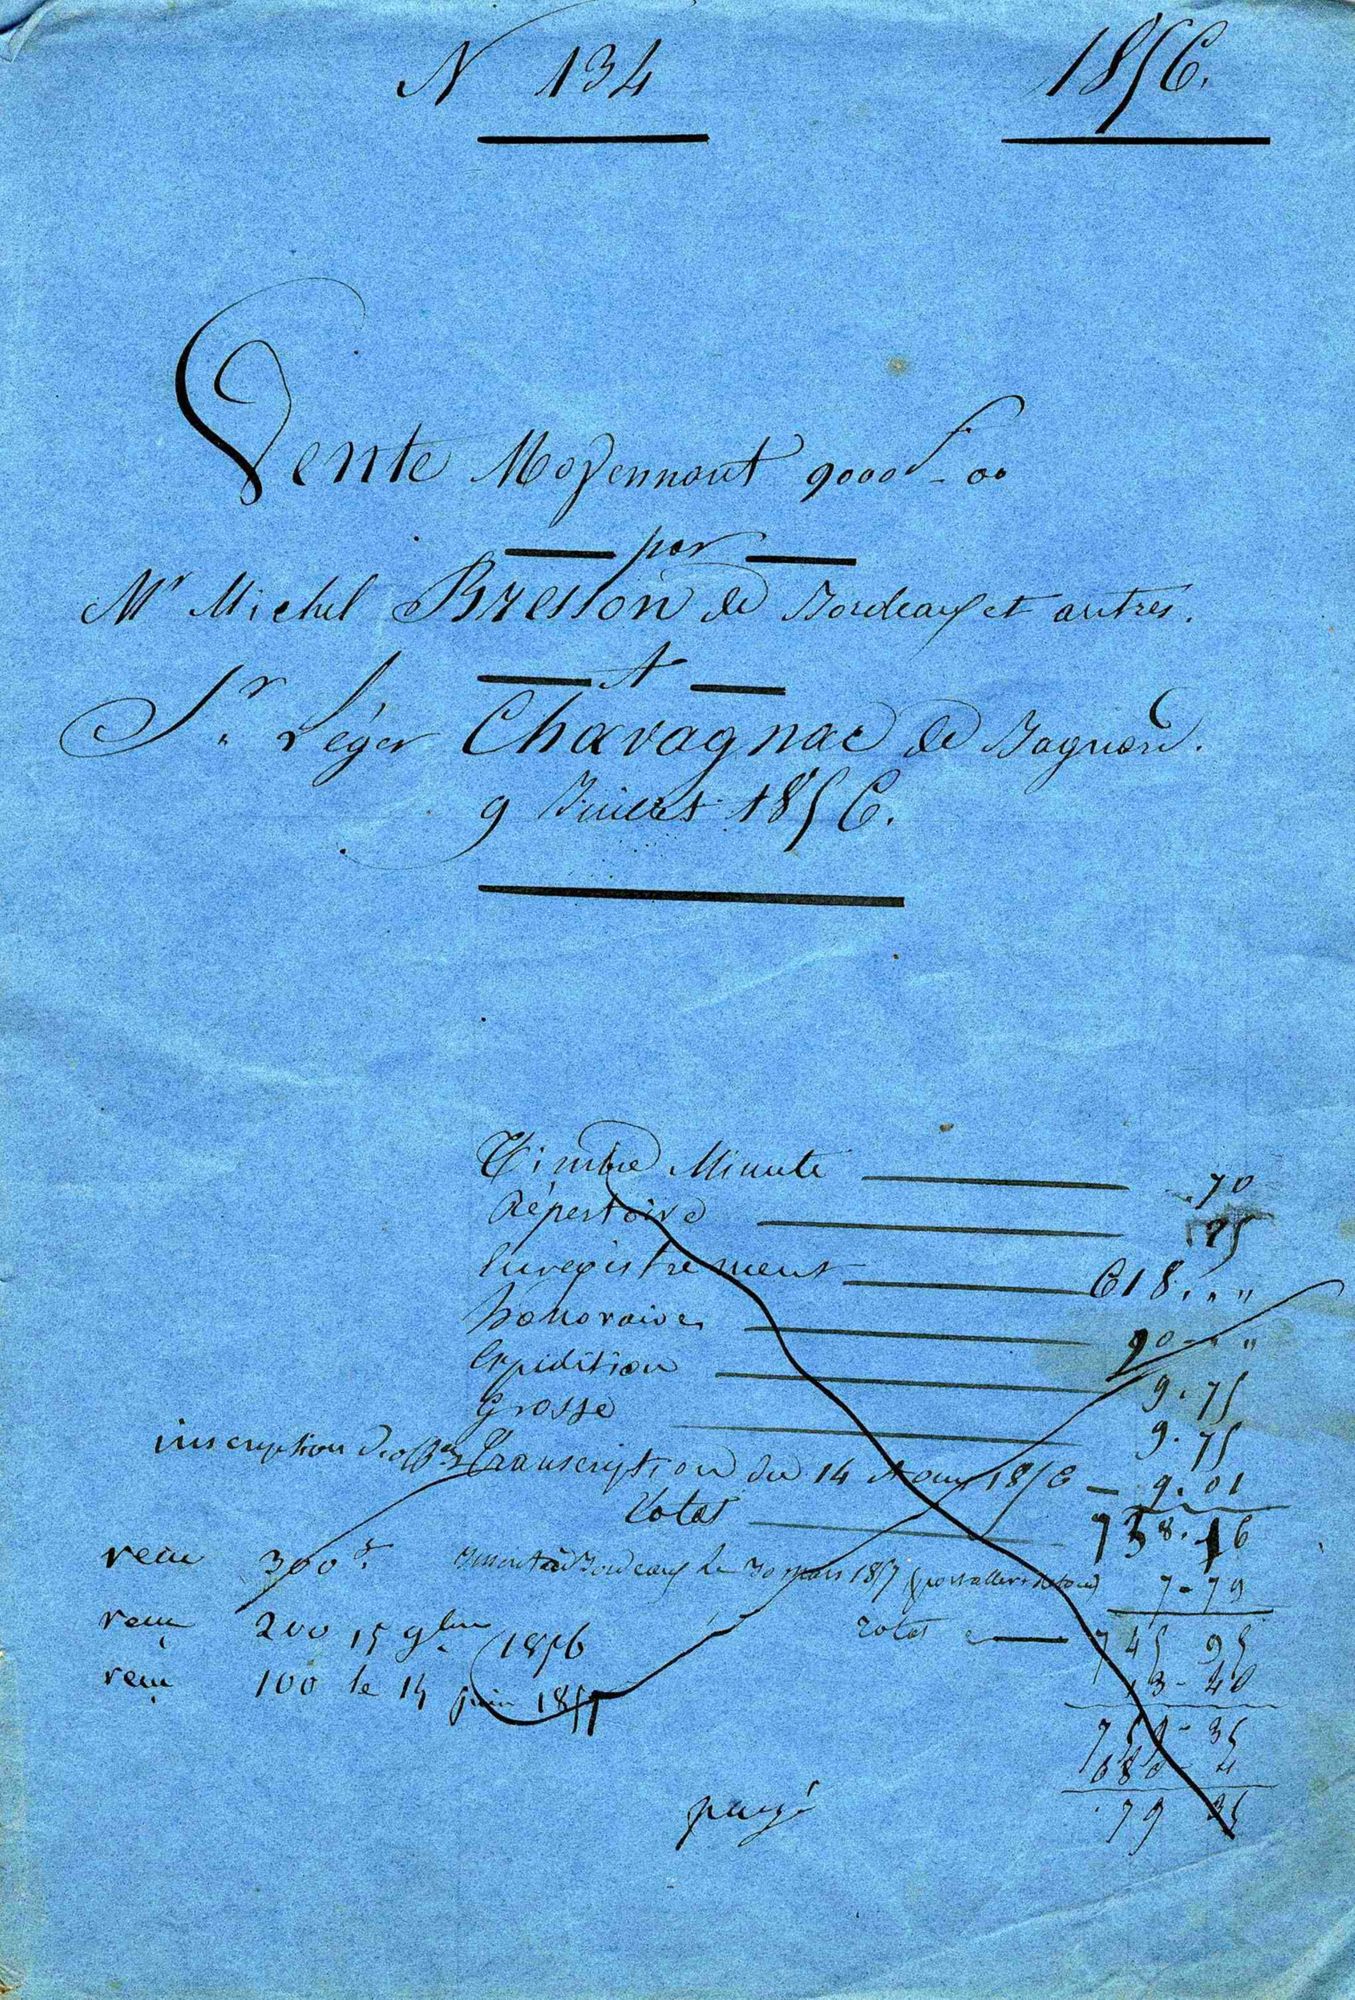 N 134 1856.
Vente Moyennant 9000 f - 00
par
Mr Michel Bresson de Bordeaux et autres.
A
Sr Léger Chavagnac de
9 Juillet 1856.
Timbre Minute .70
Répertoire 25
Enregistrement 618. " "
honoraires 90 - " "
Expédition 9.75
Grosse 9.75
inscription d'off Transcription du 14 Aout 1856 - 9.01
Total 738.16
recu 300 f Bordeaux le 30 mars 1857 (pour aller et retour) 7-79
recu 200 15 9bre 1856 total 745 95
13-40
recu 100 le 14 juin 1857
759-35
680
79 35
purgé